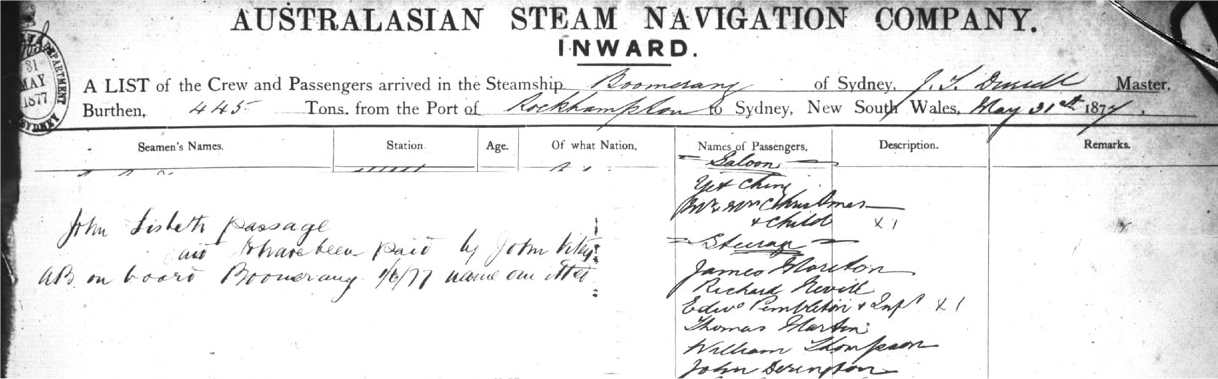 AUSTRALASIAN STEAM NAVIGATION COMPANY.
INWARD.
31
MAY
1877
A LIST of the Crew and Passengers arrived in the Steamship Boomerang of Sydney, J. S. Master.
Burthen, 445 Tons. from the Port of Rockhampton to Sydney, New South Wales, May 31st 1877.
Seamen's Names. Station. Age. Of what Nation. Names of Passengers, Description. Remarks.
Saloon
Mr & Mrs Christmas
& Child x 1
Steerage
James Moreton
Richard Nevill
Edwd Pembleton & Inft x 1
Thomas Martin
William Thompson
John Derington
John Lisbeth passage
to have been paid by John
AB on board Boomerang 1/6/77 name on